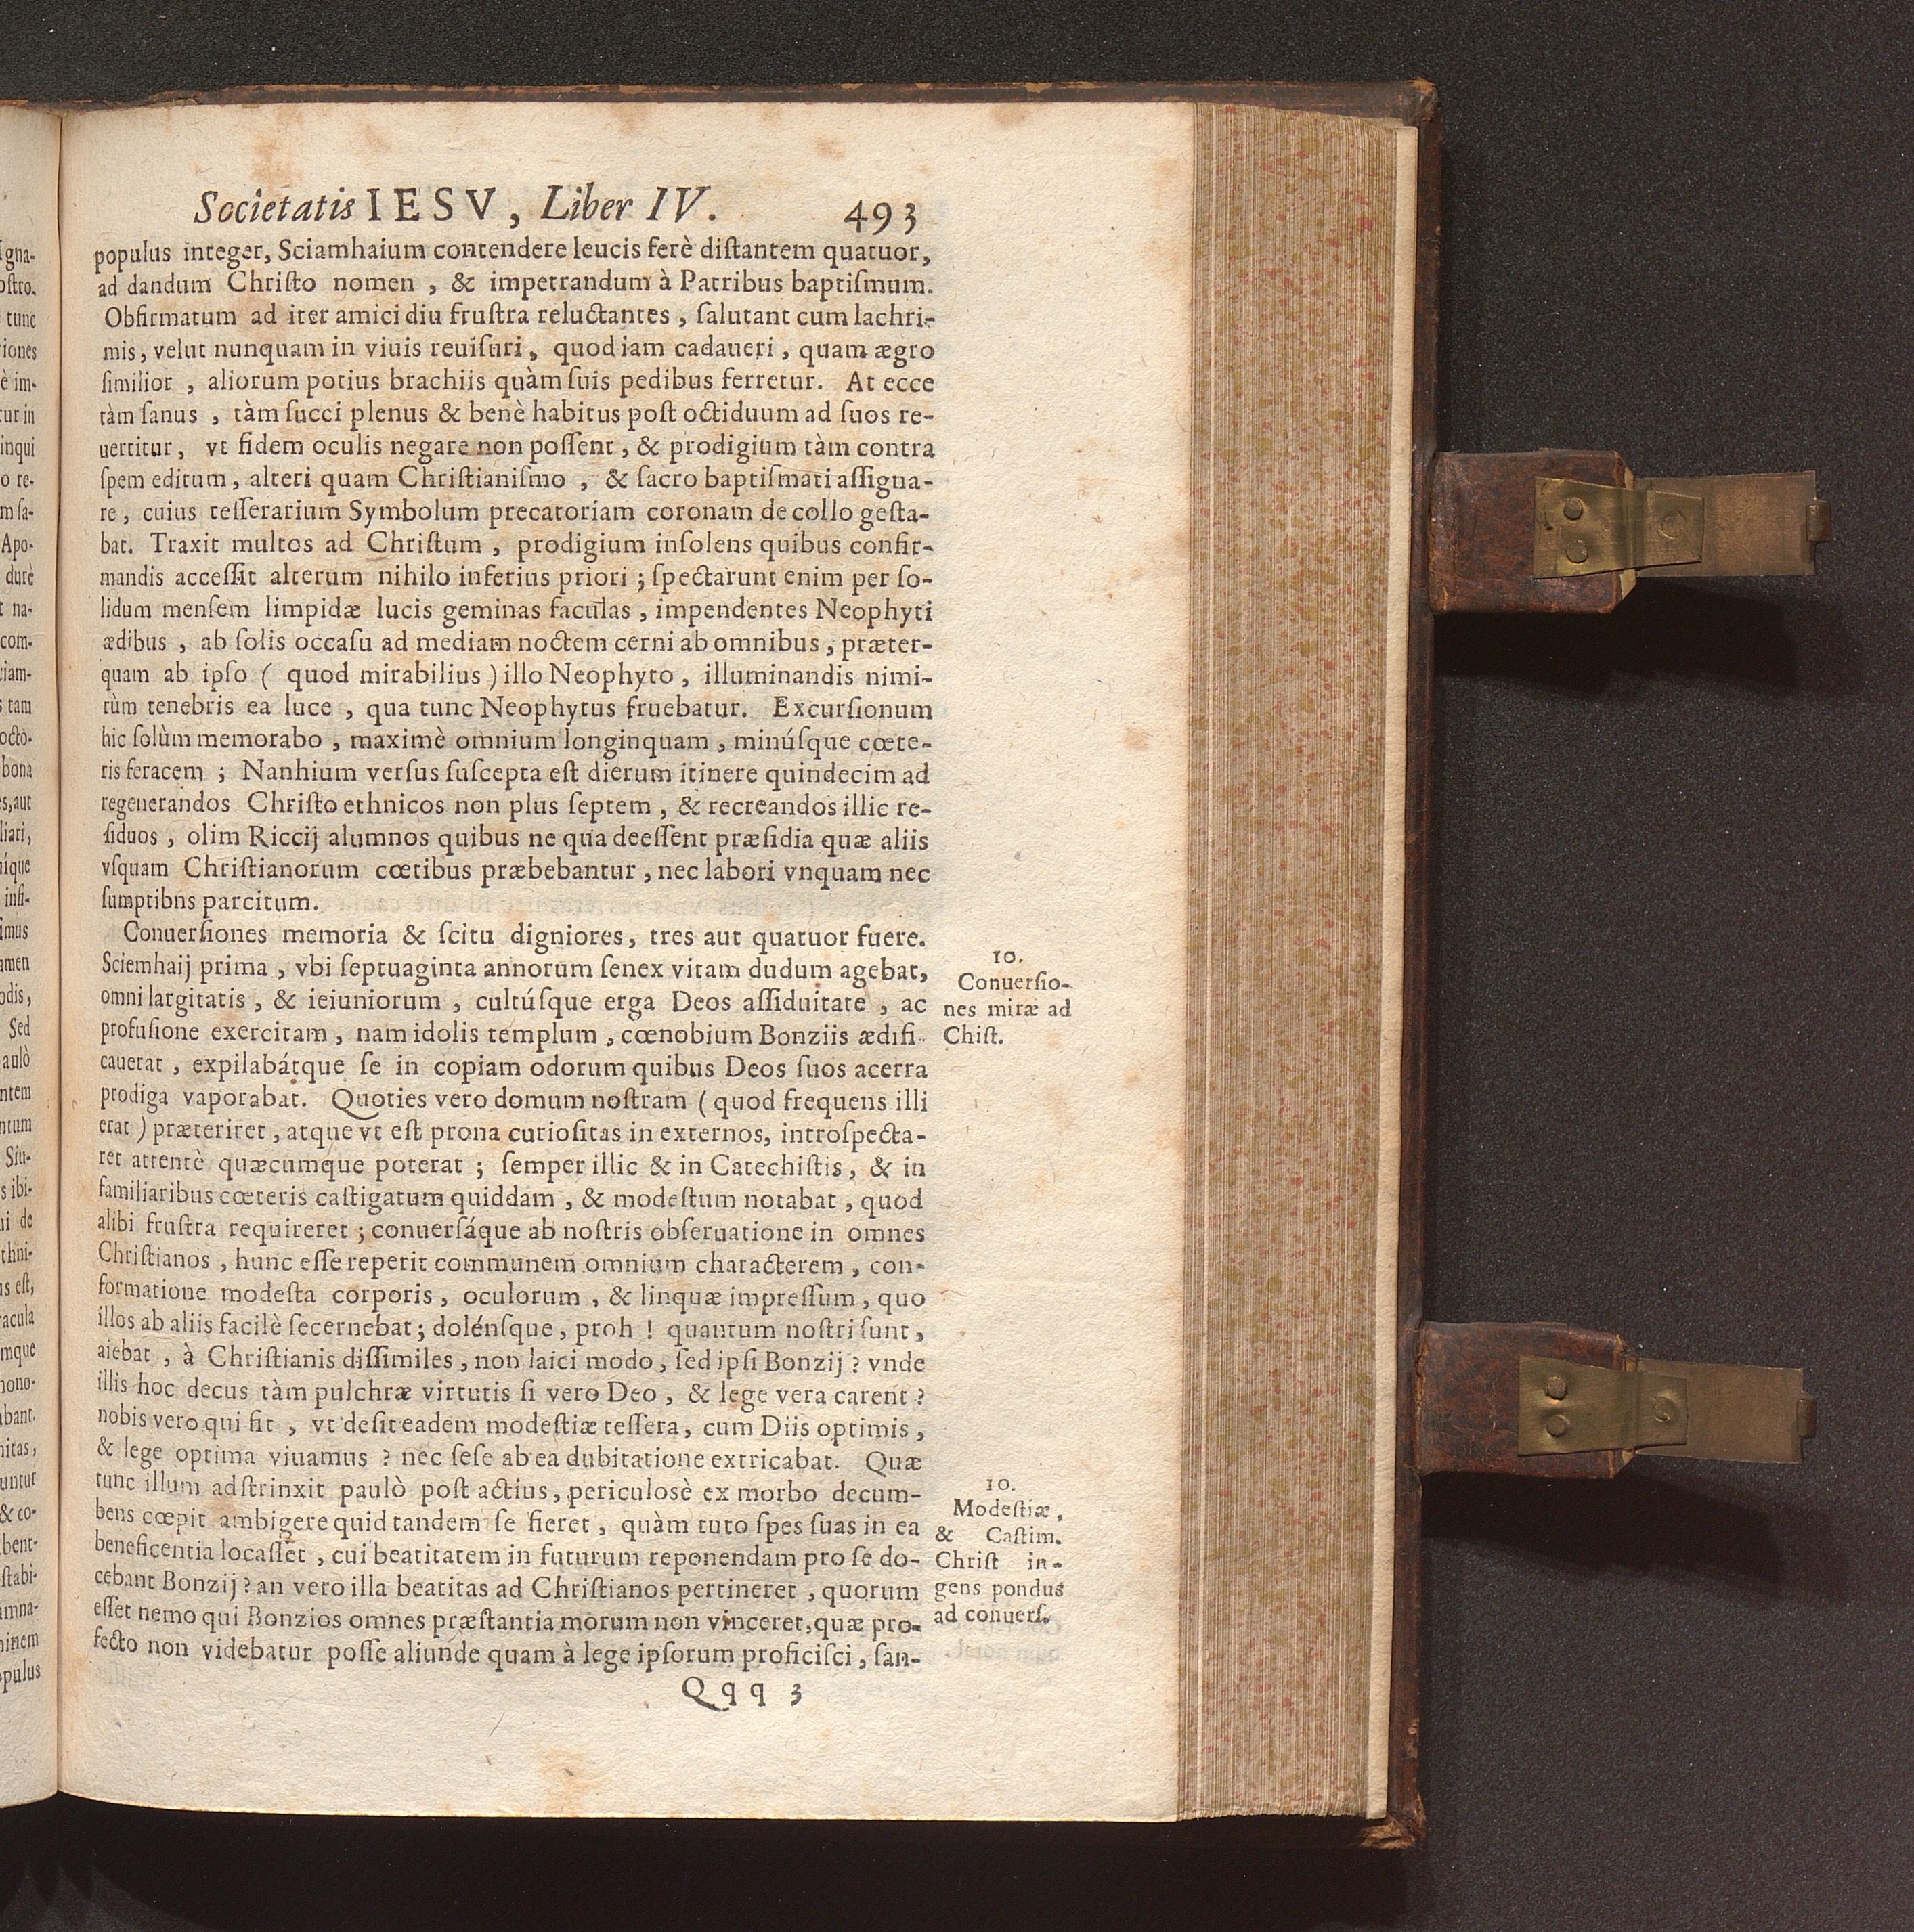 Societatis IESV, Liber IV. 493
populus integer, Sciamhaium contendere leucis ferè distantem quatuor,
ad dandum Christo nomen, & impetrandum à Patribus baptismum.
Obfirmatum ad iter amici diu frustra reluctantes, salutant cum lachri-
mis, velut nunquam in viuis reuisuri, quod iam cadaueri, quam ægro
similior, aliorum potius brachiis quàm suis pedibus ferretur. At ecce
tàm sanus, tàm succi plenus & benè habitus post octiduum ad suos re-
uertitur, vt fidem oculis negare non possent, & prodigium tàm contra
spem editum, alteri quam Christianismo, & sacro baptismati assigna-
re, cuius tesserarium Symbolum precatoriam coronam de collo gesta-
bat. Traxit multos ad Christum, prodigium insolens quibus confir-
mandis accessit alterum nihilo inferius priori; spectarunt enim per so-
lidum mensem limpidæ lucis geminas faculas, impendentes Neophyti
ædibus, ab solis occasu ad mediam noctem cerni ab omnibus, præter-
quam ab ipso ( quod mirabilius ) illo Neophyto, illuminandis nimi-
rùm tenebris ea luce, qua tunc Neophytus fruebatur. Excursionum
hic solùm memorabo, maximè omnium longinquam, minúsque cœte-
ris feracem; Nanhium versus suscepta est dierum itinere quindecim ad
regenerandos Christo ethnicos non plus septem, & recreandos illic re-
siduos, olim Riccij alumnos quibus ne qua deessent præsidia quæ aliis
vsquam Christianorum cœtibus præbebantur, nec labori vnquam nec
sumptibns parcitum.
Conuersiones memoria & scitu digniores, tres aut quatuor fuere.
Sciemhaij prima, vbi septuaginta annorum senex vitam dudum agebat,
omni largitatis, & ieiuniorum, cultúsque erga Deos assiduitate, ac
profusione exercitam, nam idolis templum, cœnobium Bonziis ædifi-
cauerat, expilabátque se in copiam odorum quibus Deos suos acerra
prodiga vaporabat. Quoties vero domum nostram ( quod frequens illi
erat ) præteriret, atque vt est prona curiositas in externos, introspecta-
ret attentè quæcumque poterat; semper illic & in Catechistis, & in
familiaribus cœteris castigatum quiddam, & modestum notabat, quod
alibi frustra requireret; conuersáque ab nostris obseruatione in omnes
Christianos, hunc esse reperit communem omnium characterem, con-
formatione modesta corporis, oculorum, & linquæ impressum, quo
illos ab aliis facilè secernebat; dolénsque, proh! quantum nostri sunt,
aiebat, à Christianis dissimiles, non laici modo, sed ipsi Bonzij? vnde
illis hoc decus tàm pulchræ virtutis si vero Deo, & lege vera carent?
nobis vero qui fit, vt desit eadem modestiæ tessera, cum Diis optimis,
& lege optima viuamus? nec sese ab ea dubitatione extricabat. Quæ
tunc illum adstrinxit paulò post actius, periculosè ex morbo decum-
bens cœpit ambigere quid tandem se fieret, quàm tuto spes suas in ea
beneficentia locasset, cui beatitatem in futurum reponendam pro se do-
cebant Bonzij? an vero illa beatitas ad Christianos pertineret, quorum
esset nemo qui Bonzios omnes præstantia morum non vinceret, quæ pro-
fecto non videbatur posse aliunde quam à lege ipsorum proficisci, san-
Qqq 3
10.
Conuersio-
nes miræ ad
Chist.
10.
Modestiæ,
& Castim.
Christ in-
gens pondus
ad conuers.